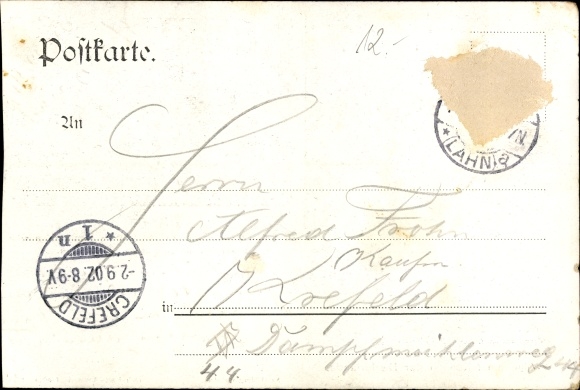 Postkarte.
12.-
An
(LAHN)
Herrn
Alfred Frohn
Kaufm
in Krefeld
Dampfmühlenweg
44.
CREFELD
-2.9.02.8-9V.
* 1 n